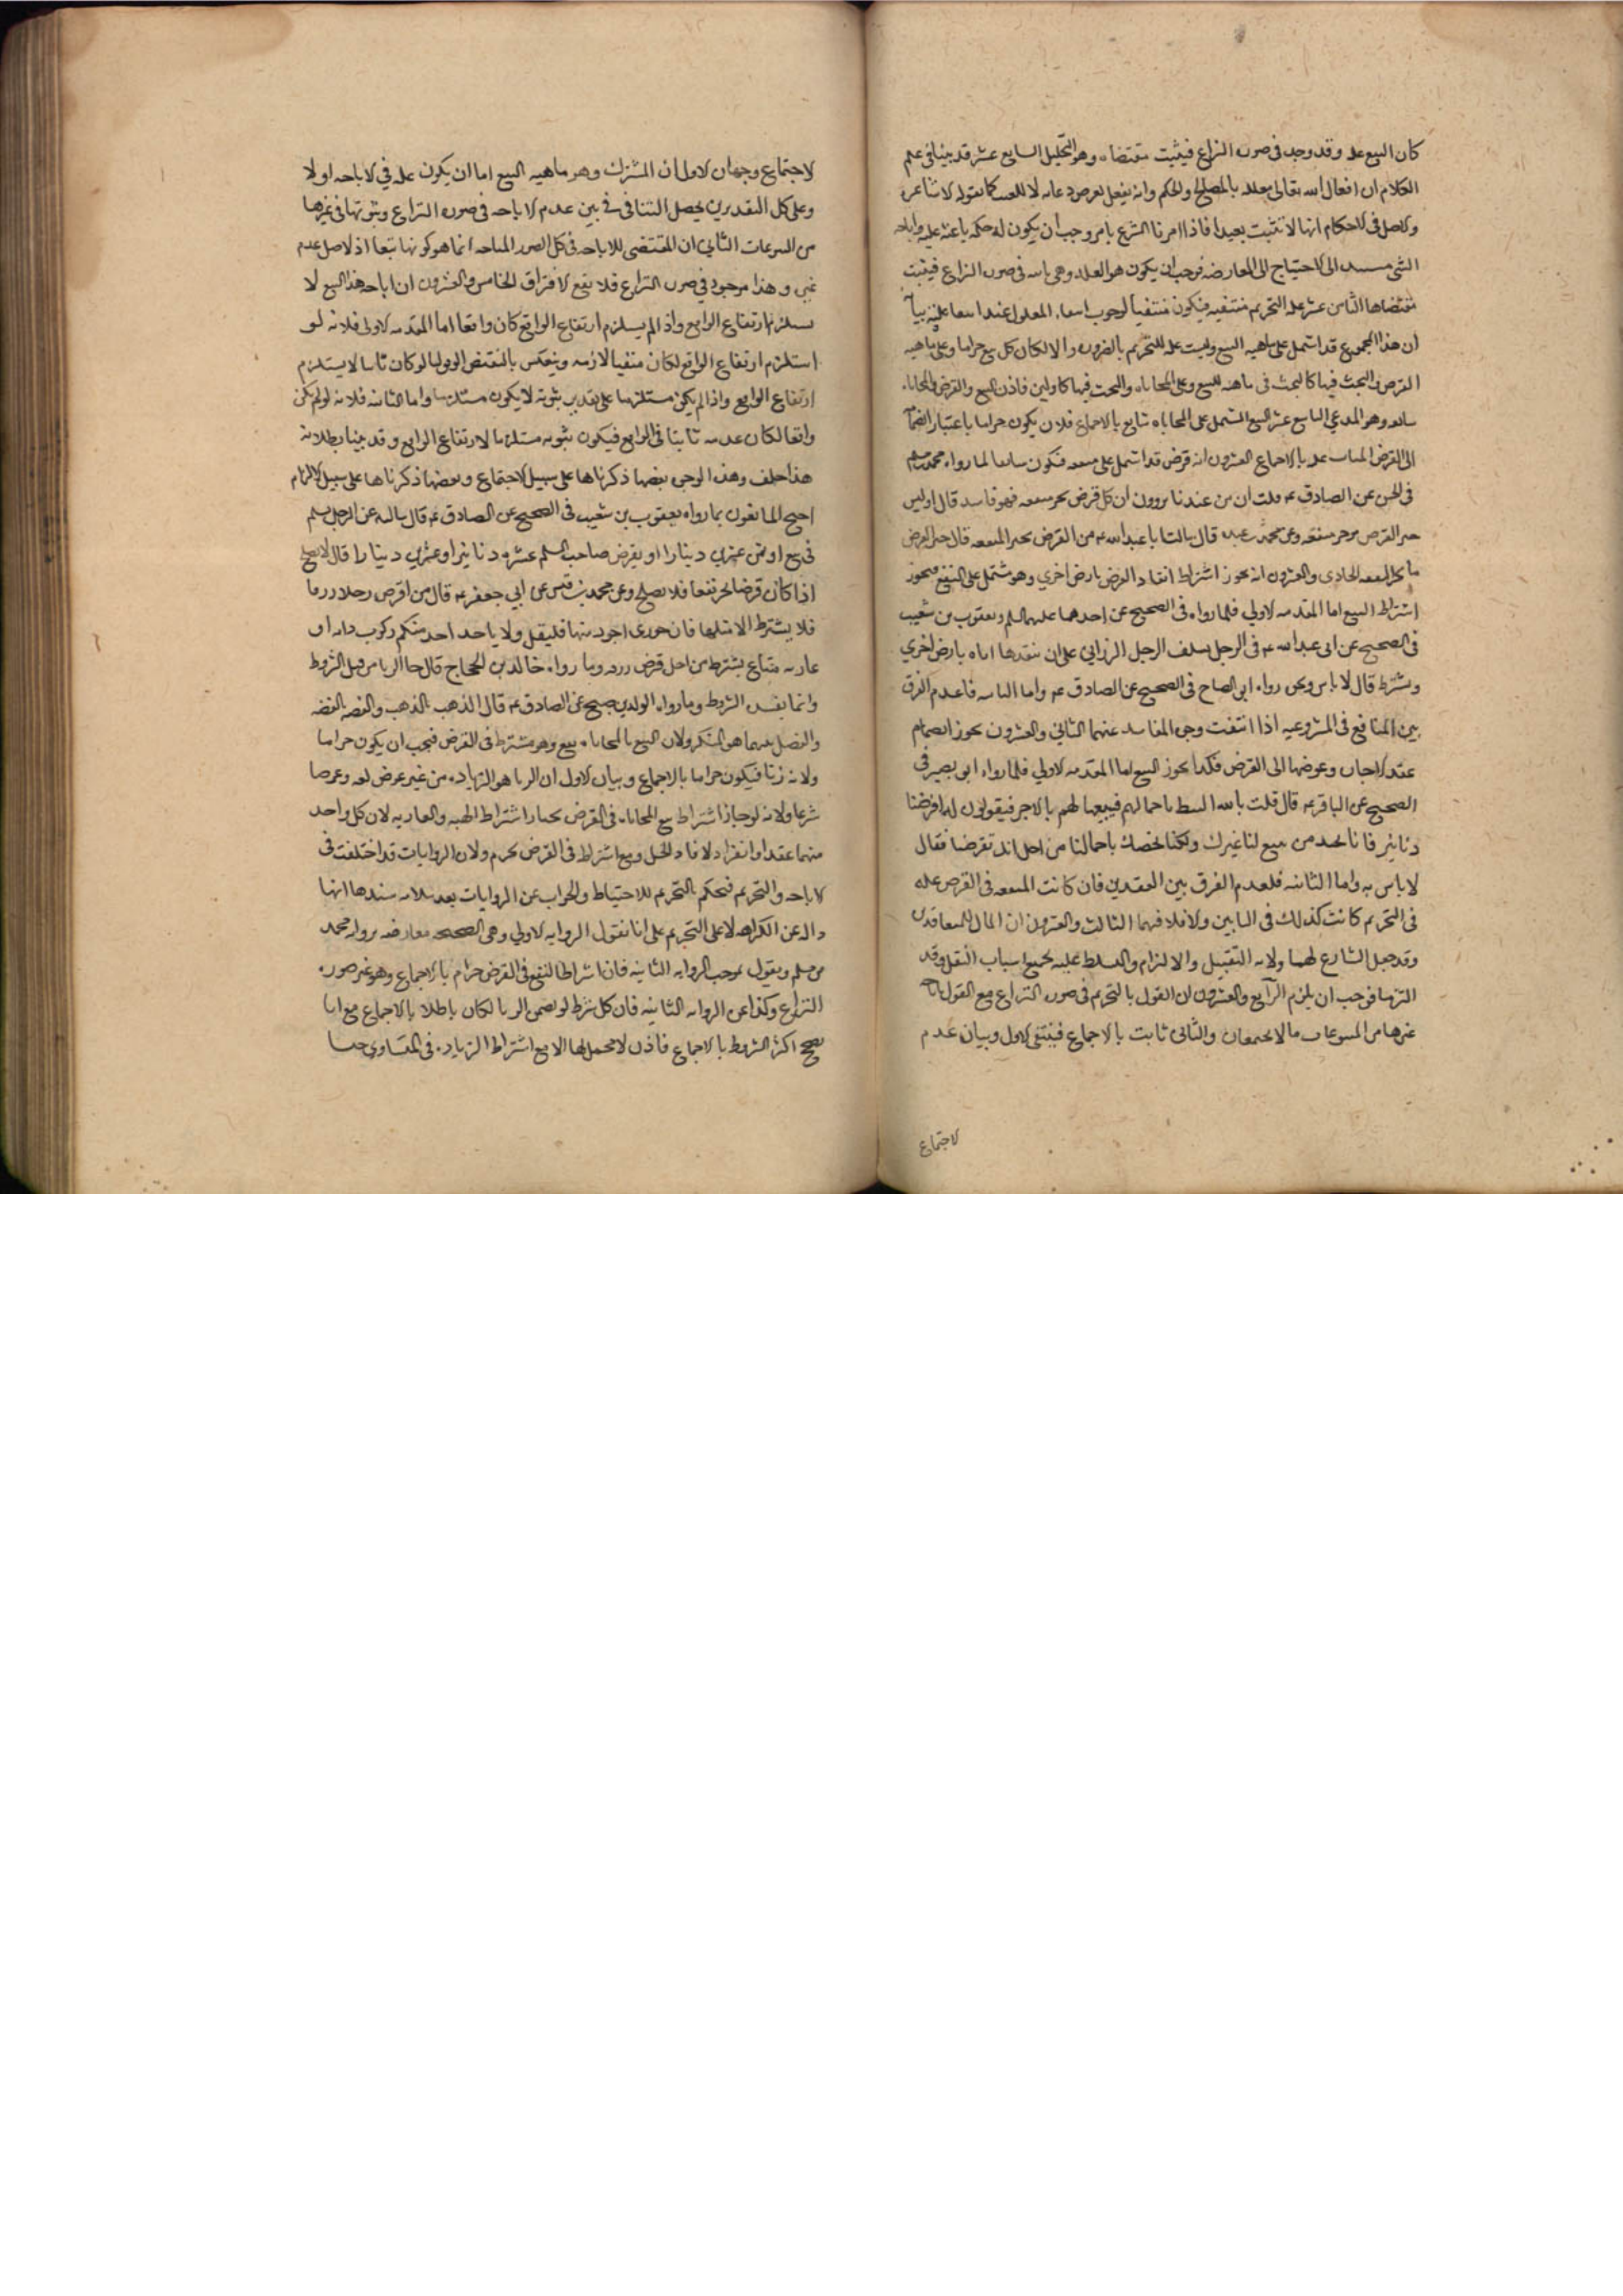 كان البيع علة وقد وجد في صورة النزاع فيثبت مقتضاه وهو التحليل السابع عشر قد بينا في علم
الكلام ان افعال الله تعالى معللة بالمصالح والحكم وانه يفعل لغرض لا للعبث كما تقوله الاشاعرة
والاصل في الاحكام انها لا تثبت تعبدا فاذا امرنا الشرع بامر وجب ان يكون له حكمة باعثة عليه واباحة
الشي الى الاحتياج الى المعارضة فوجب ان يكون هو العلة وهي في صورة النزاع فيثبت
مقتضاها الثامن عشر علة التحريم منتفية فيكون منتفيا لوجوب المعلول عند علته بيانه
ان هذا المجموع قد اشتمل على ماهية البيع وليست علة للتحريم بالضرورة والا لكان كل بيع حراما وعلى ماهية
القرض والبحث فيها كالبحث في ماهية البيع وعلى المحاباة والبحث فيها كاولين فاذن البيع والقرض والمحاباة
وهو المدعي التاسع عشر البيع المشتمل على المحاباة شايع بالاجماع فلان يكون حراما باعتبار انضمامه
الى القرض بالاجماع العشرون انه قرض قد اشتمل على منفعة فيكون سايغا لما رواه محمد بن مسلم
في الحسن عن الصادق ع قلت ان من عندنا يروون ان كل قرض يجر منفعة فهو فاسد قال اوليس
خير القرض ما جر منفعة وعن محمد بن عبده قال سالت ابا عبد الله ع عن القرض يجر المنفعة قال خير القرض
ما يجر المنفعة الحادي والعشرون انه يجوز اشتراط انقاد القرض بارض اخرى وهو مشتمل على النفع فيجوز
اشتراط البيع اما المقدمة الاولى فلما رواه في الصحيح عن احدهما عليهما السلم ويعقوب بن شعيب
في الصحيح عن ابي عبد الله ع في الرجل يسلف الرجل الورق على ان ينقدها اياه بارض اخرى
ويشترط قال لا باس ونحن رواه ابي الصباح في الصحيح عن الصادق ع واما الثانية فلعدم الفرق
بين المنافع في المشروعية اذا انتفت وجوه المفاسد عنهما الثاني والعشرون يجوز انضمام
عقد الاجارة وعوضها الى القرض فكذا يجوز البيع اما المقدمة الاولى فلما رواه ابو بصير في
الصحيح عن الباقر ع قال قلت باحمالهم فيبيعها لهم بالاجر فيقولون له اقرضنا
دنانير فانا نجد من يبيع لنا غيرك ولكنا نخصك باحمالنا من اجل انك تقرضنا فقال
لا باس به واما الثانية فلعدم الفرق بين العقدين فان كانت المنفعة في القرض علة
في التحريم كانت كذلك في البابين والا فلا فيهما الثالث والعشرون ان المال للمتعاقدين
وقد جعل الشارع لهما ولاية التقبل والالزام والتسلط عليه بجميع اسباب النقل وقد
التزما فوجب ان يلزم الرابع والعشرون ان القول بالتحريم في صورة النزاع مع القول باباحة
غيرها من المبيوعات مما لا يجتمعان والثاني ثابت بالاجماع فينتفي الاول وبيان عدم
لاجتماع
لاجتماع وجهان الاول ان المشترك وهو ماهية البيع اما ان يكون علة في الاباحة او لا
وعلى كل التقديرين يحصل التنافي بين عدم الاباحة في صورة النزاع وثبوتها في غيرها
من المبيوعات الثاني ان المقتضي للاباحة في كل الصور المباحة انما هو كونها بيعا اذ الاصل عدم
غيره وهذا موجود في صورة النزاع فلا يقع الافتراق الخامس والعشرون ان اباحة هذا البيع لا
يستلزم ارتفاع الواقع واذا لم يستلزم ارتفاع الواقع كان واقعا اما المقدمة الاولى فلانه لو
استلزم ارتفاع الواقع لكان منفيا لازمه وينعكس بالنقيض الى قولنا لو كان ثابتا لا يستلزم
ارتفاع الواقع واذا لم يكن مستلزما على تقدير ثبوته لا يكون مستلزما واما الثانية فلانه لو لم يكن
واقعا لكان عدمه ثابتا في الواقع فيكون ثبوته مستلزما لارتفاع الواقع وقد بينا بطلانه
هذا خلف وهذه الوجوه بعضها ذكرناها على سبيل الاجتماع وبعضها ذكرناها على سبيل الالزام
احتج المانعون بما رواه يعقوب بن شعيب في الصحيح عن الصادق ع قال سالته عن الرجل يسلم
في بيع او تمر عشرين دينارا او يقرض صاحب السلم عشرة دنانير او عشرين دينارا قال لا يصلح
اذا كان قرضا يجر نفعا فلا يصلح وعن محمد بن قيس عن ابي جعفر ع قال من اقرض رجلا ورقا
فلا يشترط الا مثلها فان جوزي اجود منها فليقبل ولا ياخذ احد منكم ركوب دابة او
عارية متاع يشترط من اجل قرض ورقه وما رواه خالد بن الحجاج قال جا الربا من قبل الشروط
وانما يفسده الشروط وما رواه الوليد بن صبيح عن الصادق ع قال الذهب بالذهب والفضة بالفضة
والفضل بينهما هو المنكر ولان البيع بالمحاباة بيع وهو مشترط في القرض فيجب ان يكون حراما
ولانه ربا فيكون حراما بالاجماع وبيان الاول ان الربا هو الزيادة من غير عوض لغة وعرفا
شرعا ولانه لو جاز اشتراط بيع المحاباة في القرض لجاز اشتراط الهبة والعارية لان كل واحد
منهما عقد لو انفرد لافاد الحل ومع اشتراط في القرض يحرم ولان الروايات قد اختلفت في
الاباحة والتحريم فيحكم بالتحريم للاحتياط والجواب عن الروايات بعد سلامة سندها انها
دالة عن الكراهة لا على التحريم على انا نقول الرواية الاولى وهي الصحيحة معارضة برواية محمد
بن مسلم ونقول بموجب الرواية الثانية فان اشتراط النفع في القرض حرام بالاجماع وهو غير صورة
النزاع وكذا عن الرواية الثانية فان كل شرط لو تضمن الربا لكان باطلا بالاجماع مع انا
نصحح اكثر الشروط بالاجماع فاذن لا محمل لها الا مع اشتراط الزيادة في المتساوي جنسا